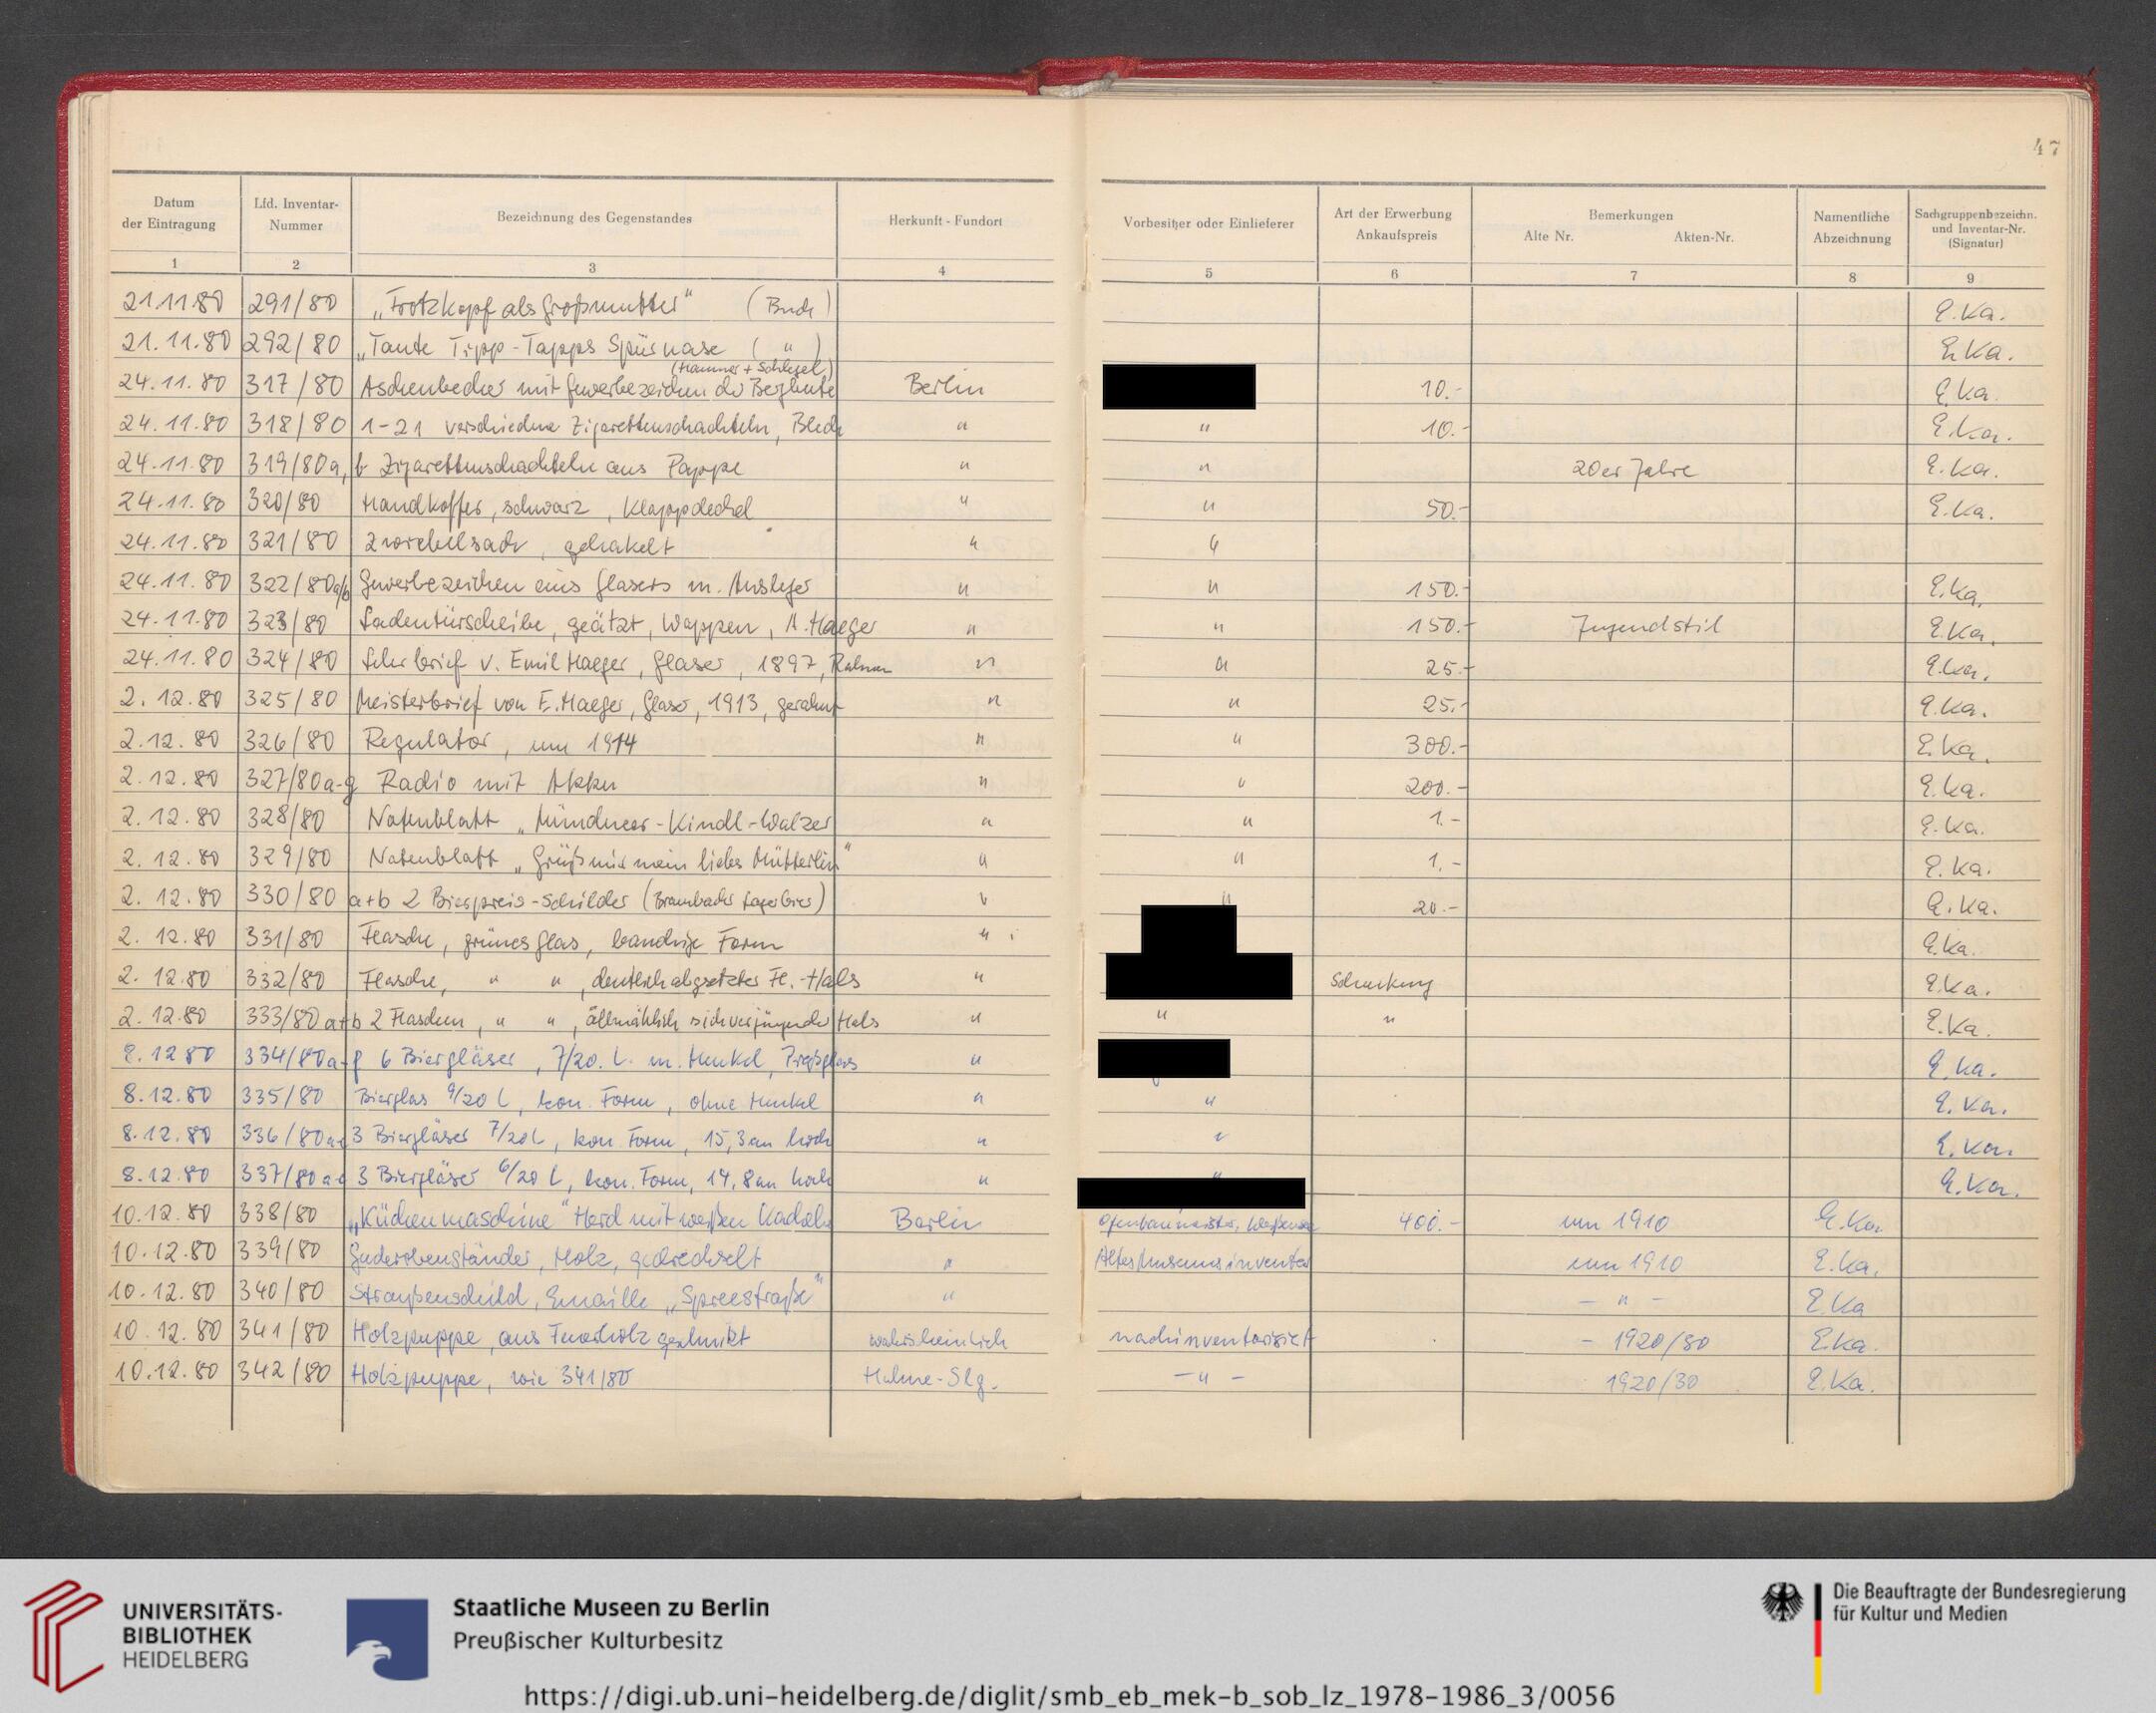 47
Datum der Eintragung | Lfd. Inventar-Nummer | Bezeichnung des Gegenstandes | Herkunft - Fundort | Vorbesitzer oder Einlieferer | Art der Erwerbung Ankaufspreis | Bemerkungen Alte Nr. Akten-Nr. | Namentliche Abzeichnung | Sachgruppenbezeichn. und Inventar-Nr. (Signatur)
1 | 2 | 3 | 4 | 5 | 6 | 7 | 8 | 9
21.11.80 | 291/80 | „Trotzkopf als Großmutter" (Buch) | E.Ka.
21.11.80 | 292/80 | „Tante Tipp-Tapps Spürnase ( " ) | E.Ka.
(Hammer + Schlegel)
24.11.80 | 317/80 | Aschenbecher mit Gewerbezeichen der Bergleute | Berlin | 10.- | E.Ka.
24.11.80 | 318/80 | 1-21 verschiedene Zigarettenschachteln, Blech | " | " | 10.- | E.Ka.
24.11.80 | 319/80a, b | Zigarettenschachteln aus Pappe | " | " | 20er Jahre | E.Ka.
24.11.80 | 320/80 | Handkoffer, schwarz, Klappdeckel | " | " | 50.- | E.Ka.
24.11.80 | 321/80 | Zwiebelsack, gehäkelt | " | "
24.11.80 | 322/80a/b | Gewerbezeichen eines Glasers m. Ausleger | " | " | 150.- | E.Ka.
24.11.80 | 323/80 | Ladentürscheibe, geätzt, Wappen, A. Haeger | " | " | 150.- | Jugendstil | E.Ka.
24.11.80 | 324/80 | Lehrbrief v. Emil Haeger, Glaser, 1897, Rahmen | " | " | 25.- | E.Ka.
2.12.80 | 325/80 | Meisterbrief von E. Haeger, Glaser, 1913, gerahmt | " | " | 25.- | E.Ka.
2.12.80 | 326/80 | Regulator, um 1914 | " | " | 300.- | E.Ka.
2.12.80 | 327/80a-g | Radio mit Akku | " | " | 200.- | E.Ka.
2.12.80 | 328/80 | Notenblatt „Münchner-Kindl-Walzer | " | " | 1.- | E.Ka.
2.12.80 | 329/80 | Notenblatt „Grüß mir mein liebes Mütterlein" | " | " | 1.- | E.Ka.
2.12.80 | 330/80 | a+b 2 Bierpreis-Schilder (Brambacher Lagerbier) | " | " | 20.- | E.Ka.
2.12.80 | 331/80 | Flasche, grünes Glas, bauchige Form | " | E.Ka.
2.12.80 | 332/80 | Flasche, " ", deutlich abgesetzter Fl.-Hals | " | Schenkung | E.Ka.
2.12.80 | 333/80 a+b | 2 Flaschen, " ", allmählich sich verjüngender Hals | " | " | " | E.Ka.
8.12.80 | 334/80a-f | 6 Biergläser, 7/20. L. m. Henkel, Preßglas | " | E.Ka.
8.12.80 | 335/80 | Bierglas 9/20 L, kon. Form, ohne Henkel | " | " | E.Ka.
8.12.80 | 336/80a-c | 3 Biergläser 7/20 L, kon. Form, 15,3cm hoch | " | " | E.Ka.
8.12.80 | 337/80a-c | 3 Biergläser 6/20 L, kon. Form, 14,8cm hoch | " | " | E.Ka.
10.12.80 | 338/80 | „Küchenmaschine" Herd mit weißen Kacheln | Berlin | Ofenbaumeister, Weißensee | 400.- | um 1910 | E.Ka.
10.12.80 | 339/80 | Garderobenständer, Holz, gedrechselt | " | Altes Museumsinventar | um 1910 | E.Ka.
10.12.80 | 340/80 | Straßenschild, Emaille „Spreestraße" | " | - " - | E.Ka
10.12.80 | 341/80 | Holzpuppe, aus Feuerholz geschnitzt | wahrscheinlich | nachinventarisiert | - 1920/30 | E.Ka.
10.12.80 | 342/80 | Holzpuppe, wie 341/80 | Hahne-Slg. | - " - | 1920/30 | E.Ka.
UNIVERSITÄTS-
BIBLIOTHEK
HEIDELBERG
Staatliche Museen zu Berlin
Preußischer Kulturbesitz
Die Beauftragte der Bundesregierung
für Kultur und Medien
https://digi.ub.uni-heidelberg.de/diglit/smb_eb_mek-b_sob_lz_1978-1986_3/0056